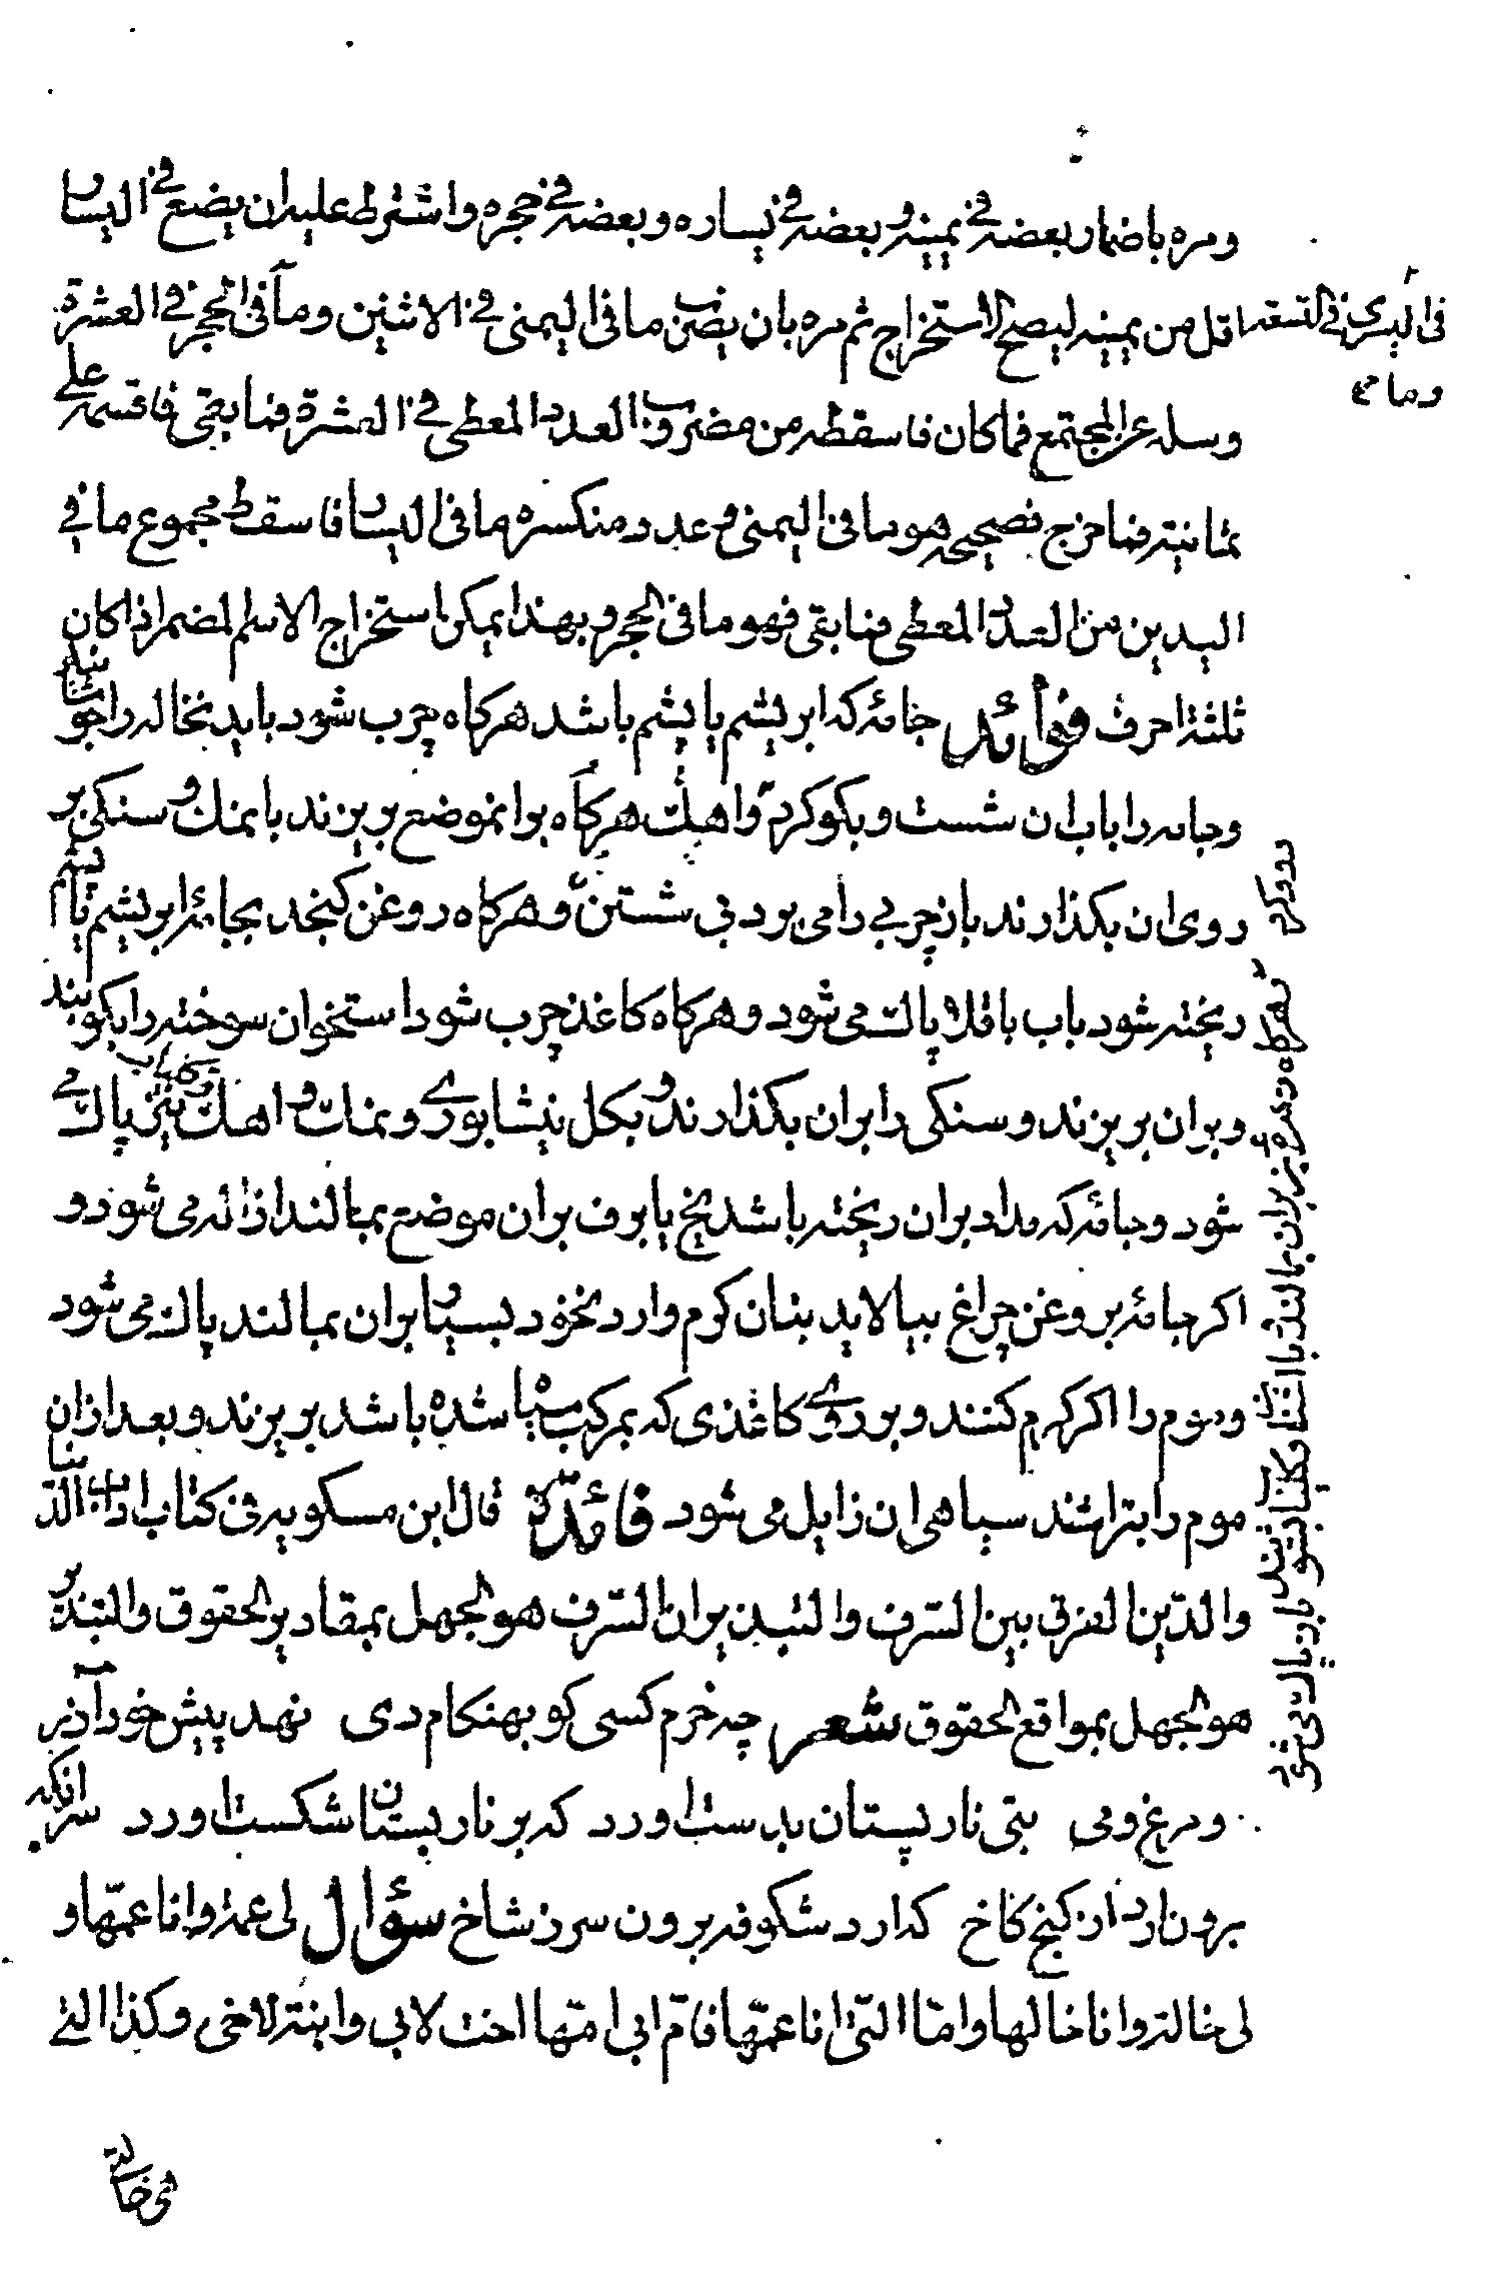 ومره باضمار بعضه فى يمينه وبعضه فى يساره وبعضه فى حجره واشترط عليه ان يضع فى اليسار
اقل من يمينه ليصح الاستخراج ثم مره بان يضرب ما فى اليمنى فى الاثنين وما فى الحجر فى العشرة
فى اليسرى فى التسعة
وما
وسله عن المجتمع فما كان فاسقطه من مضروب العدد المعطى فى العشرة فما بقى فاقسمه على
ثمانية فما خرج صحيحه هو ما فى اليمنى وعدد منكسره ما فى اليسار فاسقط مجموع ما فى
اليدين من العدد المعطى فما بقى فهو ما فى الحجر وبهذا يمكن استخراج الاسم المضمر اذا كان
ثلثة احرف فوائد جامه كه ابريشم يا پشم باشد هركاه چرب شود بايد نخاله را جوشانيد
وجامه را باب ان شست وبكوكرد واهك هركاه برانموضع بريزند با نمك وسنكى بر
روى ان بكذارند باز چربى را مى برد بى شستن وهركاه روغن كنجد بجامه ابريشم يا پشم
ريخته شود باب باقلا پاك مى شود وهركاه كاغذ چرب شود استخوان سوخته را بكوبند
وبران بريزند وسنكى را بران بكذارند وبكل نيشابورى ونمك واهك نيز پاك مى
شود وجامه كه مداد بران ريخته باشد يخ يا برف بران موضع بمالند ازاله مى شود و
اكر جامه بروغن چراغ بيالايد بنان كرم وارد نخود بسيار بران بمالند پاك مى شود
وموم را اكر كرم كنند وبر روى كاغذى كه بمركب سياه شده باشد بريزند وبعد ازان
موم را بتراشند سياهى ان زايل مى شود فائدة قال ابن مسكويه فى كتاب اداب الدنيا
والدين الفرق بين السرف والتبذير ان السرف هو الجهل بمقادير الحقوق والتبذير
هو الجهل بمواقع الحقوق شعر چه خرم كسى كو بهنكام دى نهد پيش خود آذر
ومرغ ومى بتى نار پستان بدست اورد كه بر نار پستان شكست اورد سر انكه
برون ارد از كنج كاخ كه ارد شكوفه برون سر ز شاخ سؤال لى عمة وانا عمها و
لى خالة وانا خالها واما التى انا عمها فام ابى امها اخت لابى وابنة لاخى وكذا التى
هى خالة